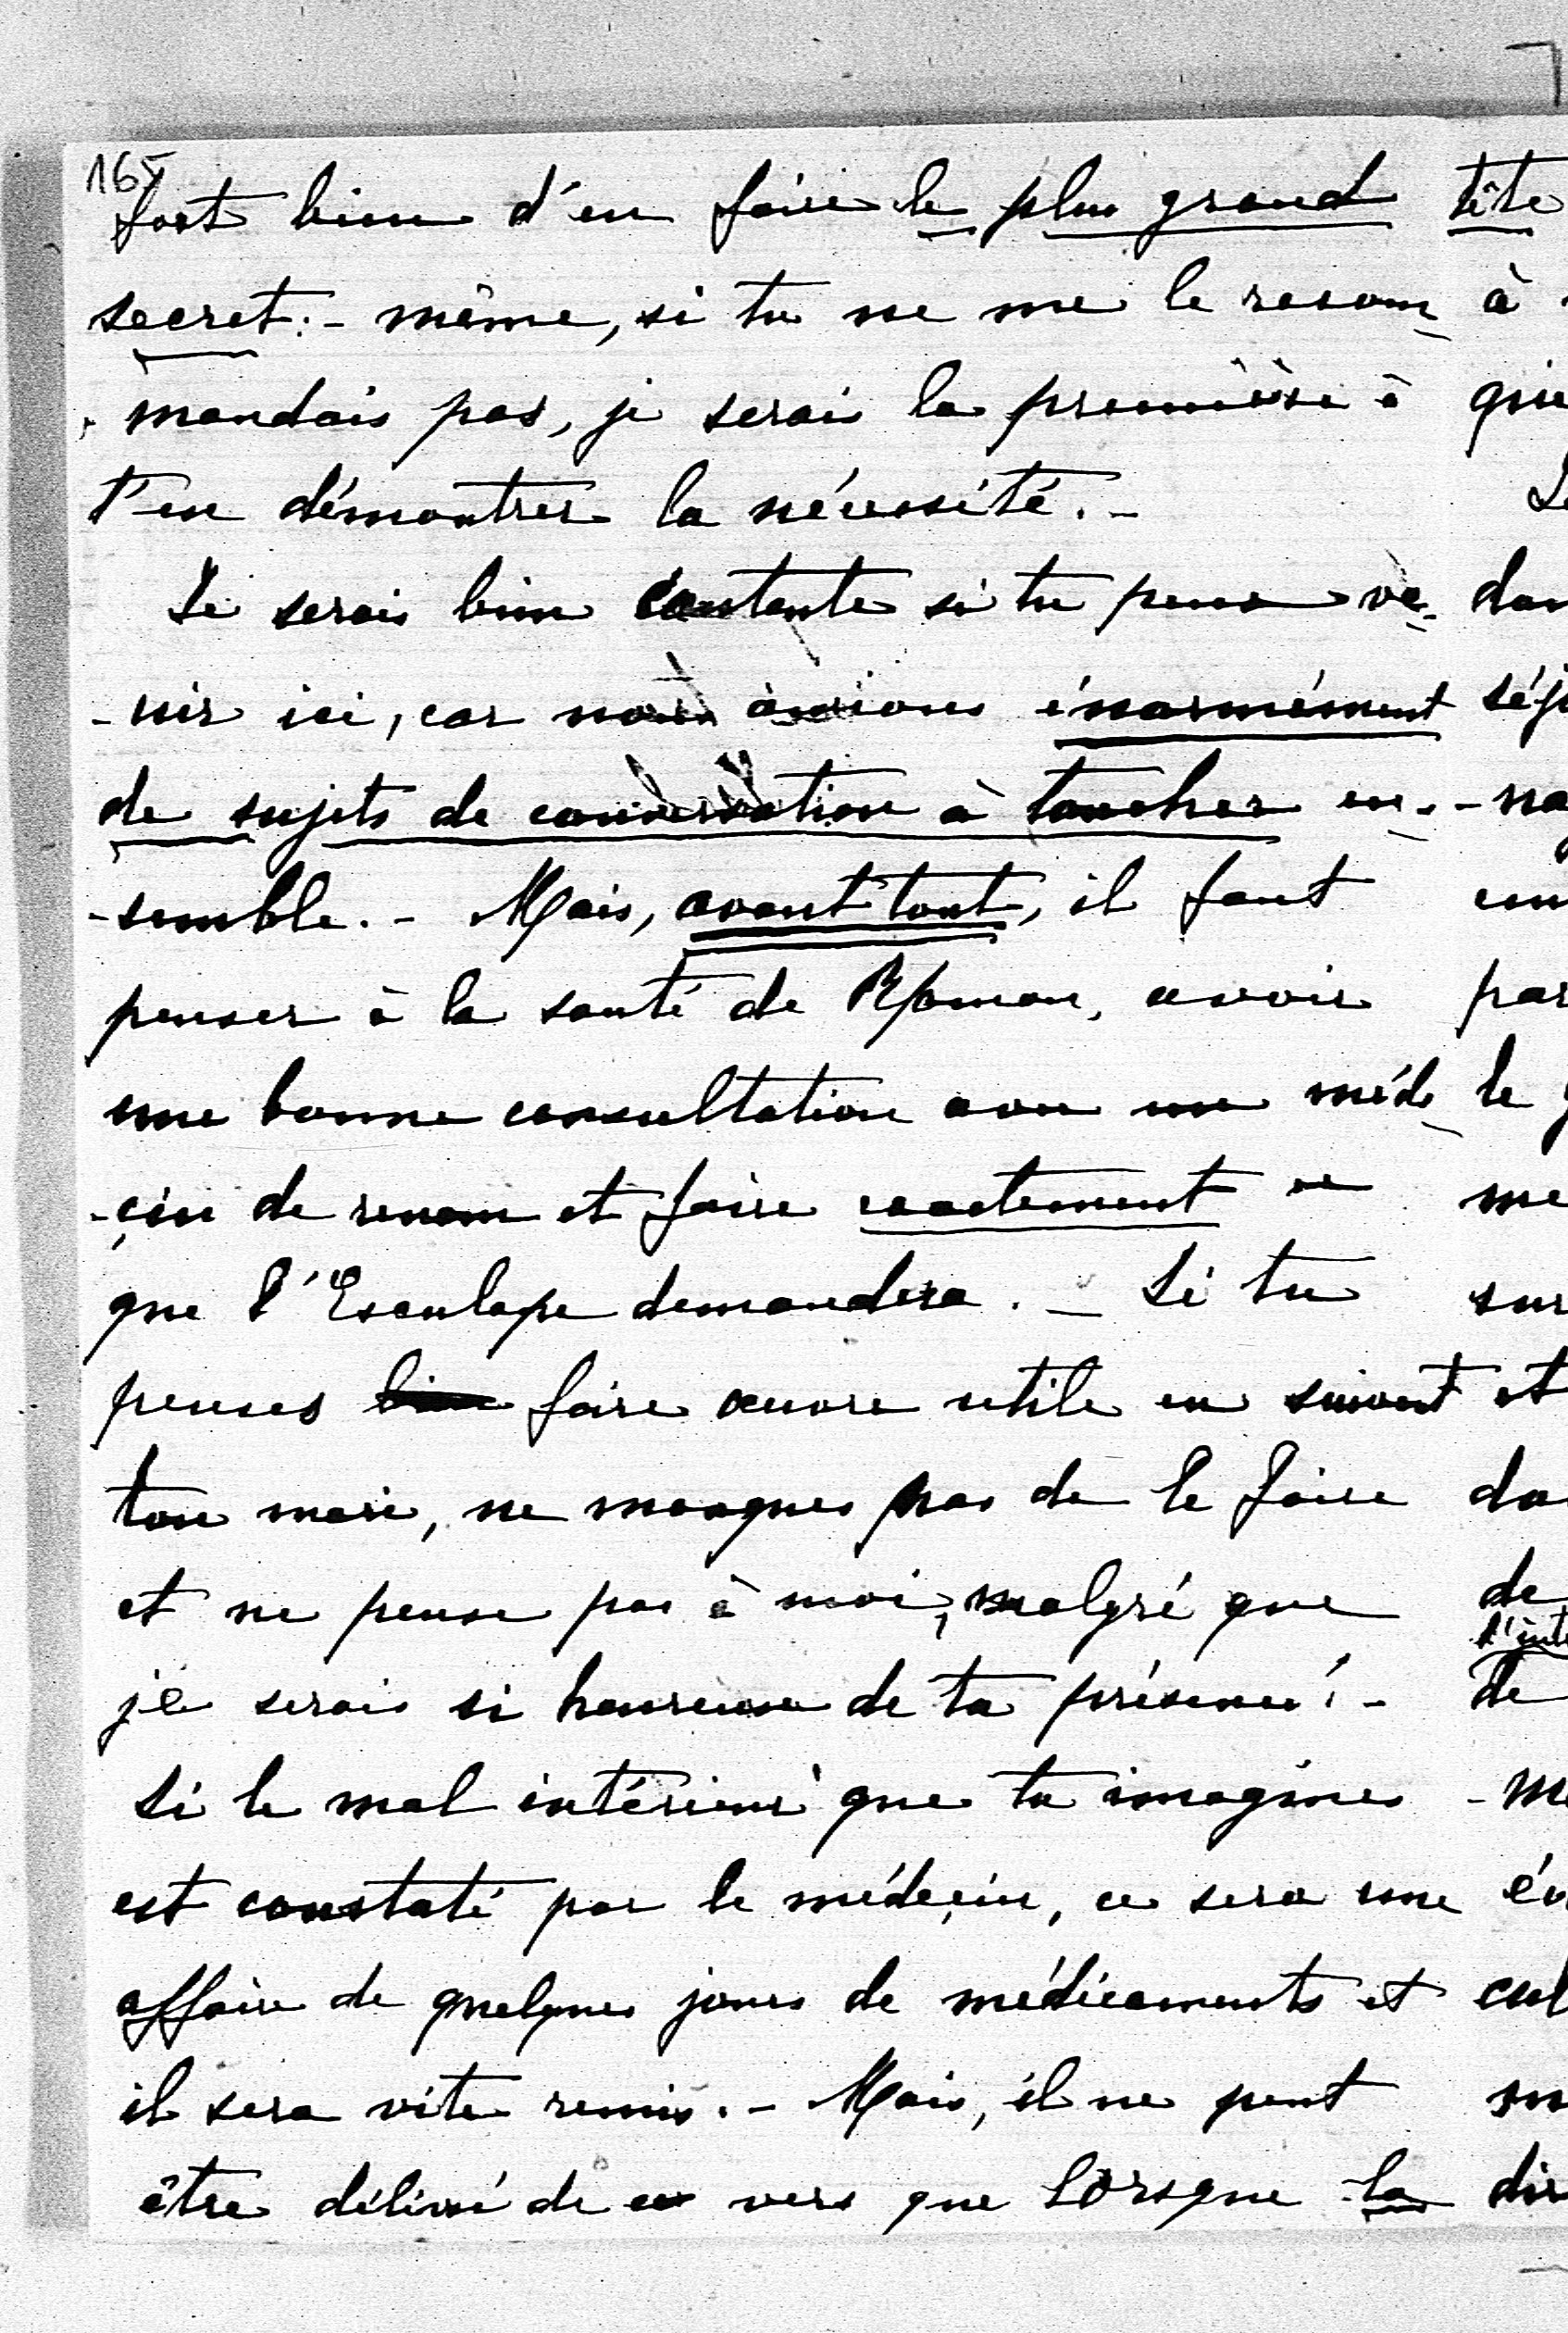 165
fort bien d'en faire le plus grand
secret :- même, si tu ne me le recom-
-mandais pas, je serais la première à
t'en démontrer la nécessité. -
Je serais bien contente si tu peux ve-
-nir ici, car nous aurions énormément
de sujets de conversation à toucher en-
-semble. - Mais, avant tout, il faut
penser à la santé de Maman, avoir
une bonne consultation avec un méde-
-çin de renom et faire exactement ce
que l'Esculape demandera. - Si tu
penses bien faire œuvre utile en suivant
ton mari, ne manques pas de le faire
et ne pense pas à moi, malgré que
je serais si heureuse de ta présence! -
Si le mal intérieur que tu imagines
est constaté par le médeçin, ce sera une
affaire de quelques jours de médicaments et
il sera vite remis. - Mais, il ne peut
être délivré de ce vers que lorsque la
tête
à
de
de
le
et